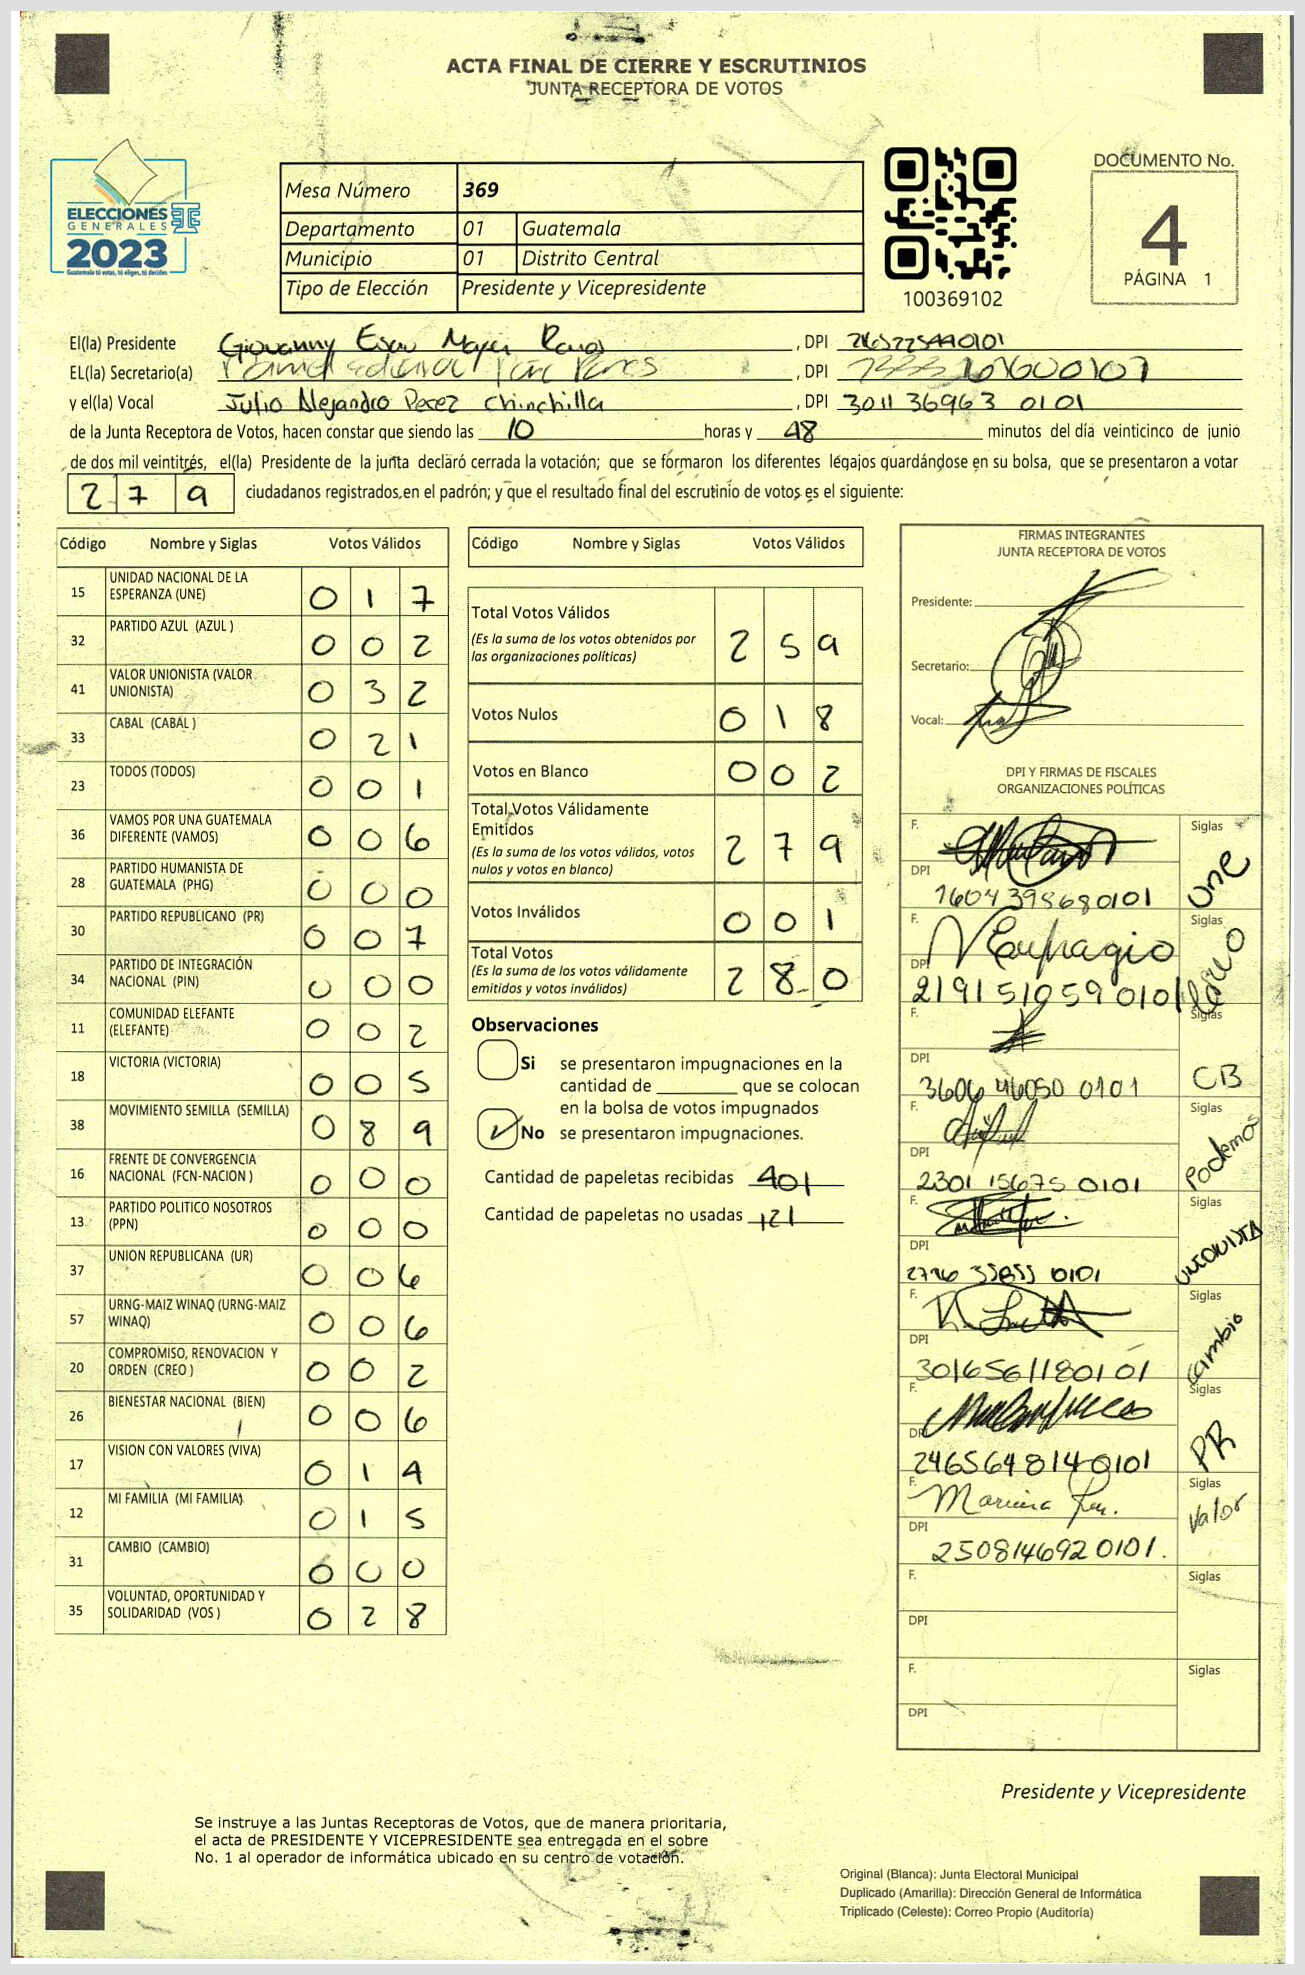 ACTA FINAL DE CIERRE Y ESCRUTINIOS
JUNTA RECEPTORA DE VOTOS
ELECCIONES
GENERALES
2023
Guatemala tú votas, tú eliges, tú decides
Mesa Número 369
Departamento 01 Guatemala
Municipio 01 Distrito Central
Tipo de Elección Presidente y Vicepresidente
100369102
DOCUMENTO No.
4
PÁGINA 1
El(la) Presidente Giovanny Esau, DPI
EL(la) Secretario(a), DPI
y el(la) Vocal Julio Alejandro Perez Chinchilla, DPI 3011 36963 0101
de la Junta Receptora de Votos, hacen constar que siendo las 10 horas y 48 minutos del día veinticinco de junio
de dos mil veintitrés, el(la) Presidente de la junta declaró cerrada la votación; que se formaron los diferentes légajos guardándose en su bolsa, que se presentaron a votar
279 ciudadanos registrados en el padrón; y que el resultado final del escrutinio de votos es el siguiente:
Código Nombre y Siglas Votos Válidos
15 UNIDAD NACIONAL DE LA ESPERANZA (UNE) 017
32 PARTIDO AZUL (AZUL ) 002
41 VALOR UNIONISTA (VALOR UNIONISTA) 032
33 CABAL (CABAL ) 021
23 TODOS (TODOS) 001
36 VAMOS POR UNA GUATEMALA DIFERENTE (VAMOS) 006
28 PARTIDO HUMANISTA DE GUATEMALA (PHG) 000
30 PARTIDO REPUBLICANO (PR) 007
34 PARTIDO DE INTEGRACIÓN NACIONAL (PIN) 000
11 COMUNIDAD ELEFANTE (ELEFANTE) 002
18 VICTORIA (VICTORIA) 005
38 MOVIMIENTO SEMILLA (SEMILLA) 089
16 FRENTE DE CONVERGENCIA NACIONAL (FCN-NACION ) 000
13 PARTIDO POLITICO NOSOTROS (PPN) 000
37 UNION REPUBLICANA (UR) 006
57 URNG-MAIZ WINAQ (URNG-MAIZ WINAQ) 006
20 COMPROMISO, RENOVACION Y ORDEN (CREO ) 002
26 BIENESTAR NACIONAL (BIEN) 006
17 VISION CON VALORES (VIVA) 014
12 MI FAMILIA (MI FAMILIA) 015
31 CAMBIO (CAMBIO) 000
35 VOLUNTAD, OPORTUNIDAD Y SOLIDARIDAD (VOS ) 028
Código Nombre y Siglas Votos Válidos
Total Votos Válidos
(Es la suma de los votos obtenidos por las organizaciones políticas) 259
Votos Nulos 018
Votos en Blanco 002
Total Votos Válidamente Emitidos
(Es la suma de los votos válidos, votos nulos y votos en blanco) 279
Votos Inválidos 001
Total Votos
(Es la suma de los votos válidamente emitidos y votos inválidos) 280
Observaciones
Si se presentaron impugnaciones en la
cantidad de ________ que se colocan
en la bolsa de votos impugnados
No se presentaron impugnaciones.
Cantidad de papeletas recibidas 401
Cantidad de papeletas no usadas 121
FIRMAS INTEGRANTES
JUNTA RECEPTORA DE VOTOS
Presidente:
Secretario:
Vocal:
DPI Y FIRMAS DE FISCALES
ORGANIZACIONES POLÍTICAS
F. Siglas
DPI 1604398680101 une
F. Siglas
DPI 2191510590101
F. Siglas
DPI 3606 46050 0101 CB
F. Siglas
DPI 2301 15675 0101 Podemos
F. Siglas
DPI UNIONISTA
F. Siglas
DPI 3016561180101 cambio
F. Siglas
DPI 2465648140101 PR
F. Siglas
DPI 2508146920101. Valor
F. Siglas
DPI
F. Siglas
DPI
Presidente y Vicepresidente
Se instruye a las Juntas Receptoras de Votos, que de manera prioritaria,
el acta de PRESIDENTE Y VICEPRESIDENTE sea entregada en el sobre
No. 1 al operador de informática ubicado en su centro de votación.
Original (Blanca): Junta Electoral Municipal
Duplicado (Amarilla): Dirección General de Informática
Triplicado (Celeste): Correo Propio (Auditoría)